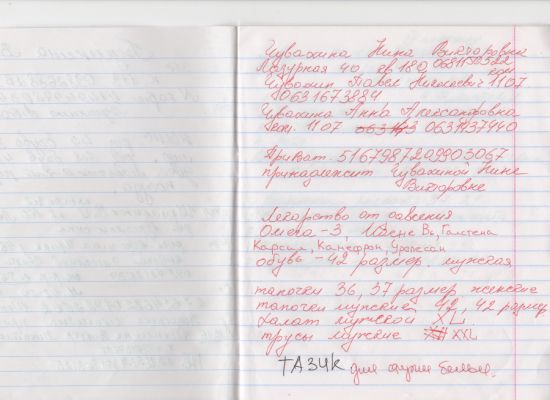 Чувахина Нина Викторовна
Лазурная 40, кв 180, 0681150522
Чувахин Павел Николаевич 1107
0631673884
Чувахина Анна Александровна
1107 0631137940
Приват. 5167987209903067
принадлежит Чувахиной Нине
Викторовне
Лекарство от давления
Омега-3, В6, Галстена
Карсил, Канефрон, Уролесан
обувь - 42 размер. мужская
тапочки 36, 37 размер женские
тапочки мужские 42, 42 размер
халат мужской XL
трусы мужские XXL
ТАЗИК для стирки белья.